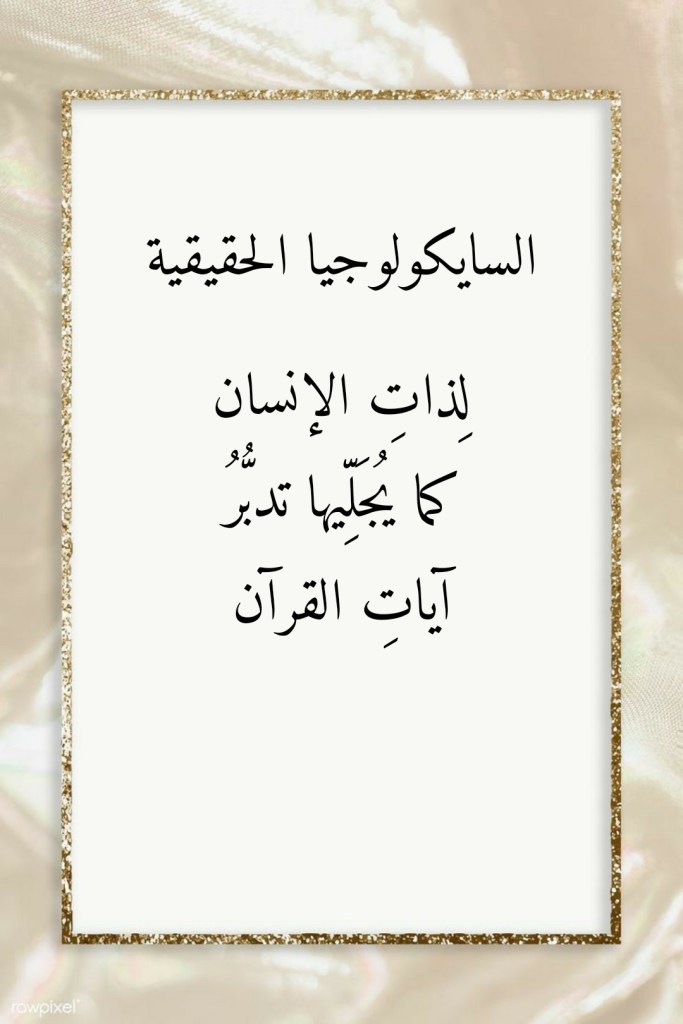 السايكولوجيا الحقيقية
لِذاتِ الإنسان
كما يُجَلِّيها تدبُّرُ
آياتِ القرآن
rawpixel